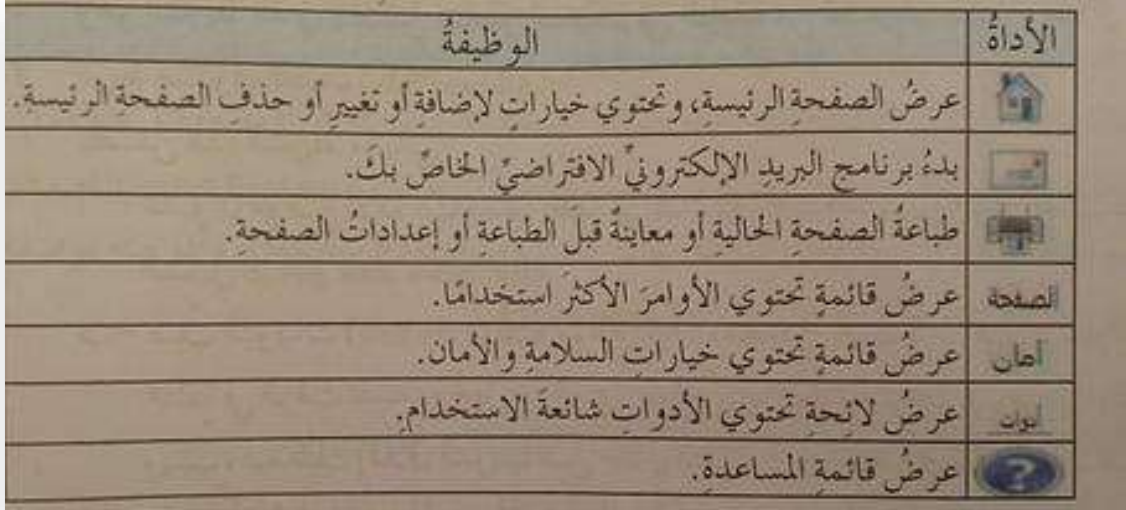 الأداةُ الوظيفةُ
عرضُ الصفحةِ الرئيسةِ، وتحتوي خياراتٍ لإضافةِ أو تغييرِ أو حذفِ الصفحةِ الرئيسةِ.
بدءُ برنامجِ البريدِ الإلكترونيِّ الافتراضيِّ الخاصِّ بكَ.
طباعةُ الصفحةِ الحاليةِ أو معاينةٌ قبلَ الطباعةِ أو إعداداتُ الصفحةِ.
الصفحة عرضُ قائمةٍ تحتوي الأوامرَ الأكثرَ استخدامًا.
أمان عرضُ قائمةٍ تحتوي خياراتِ السلامةِ والأمان.
أدوات عرضُ لائحةٍ تحتوي الأدواتِ شائعةَ الاستخدامِ.
? عرضُ قائمةِ المساعدةِ.